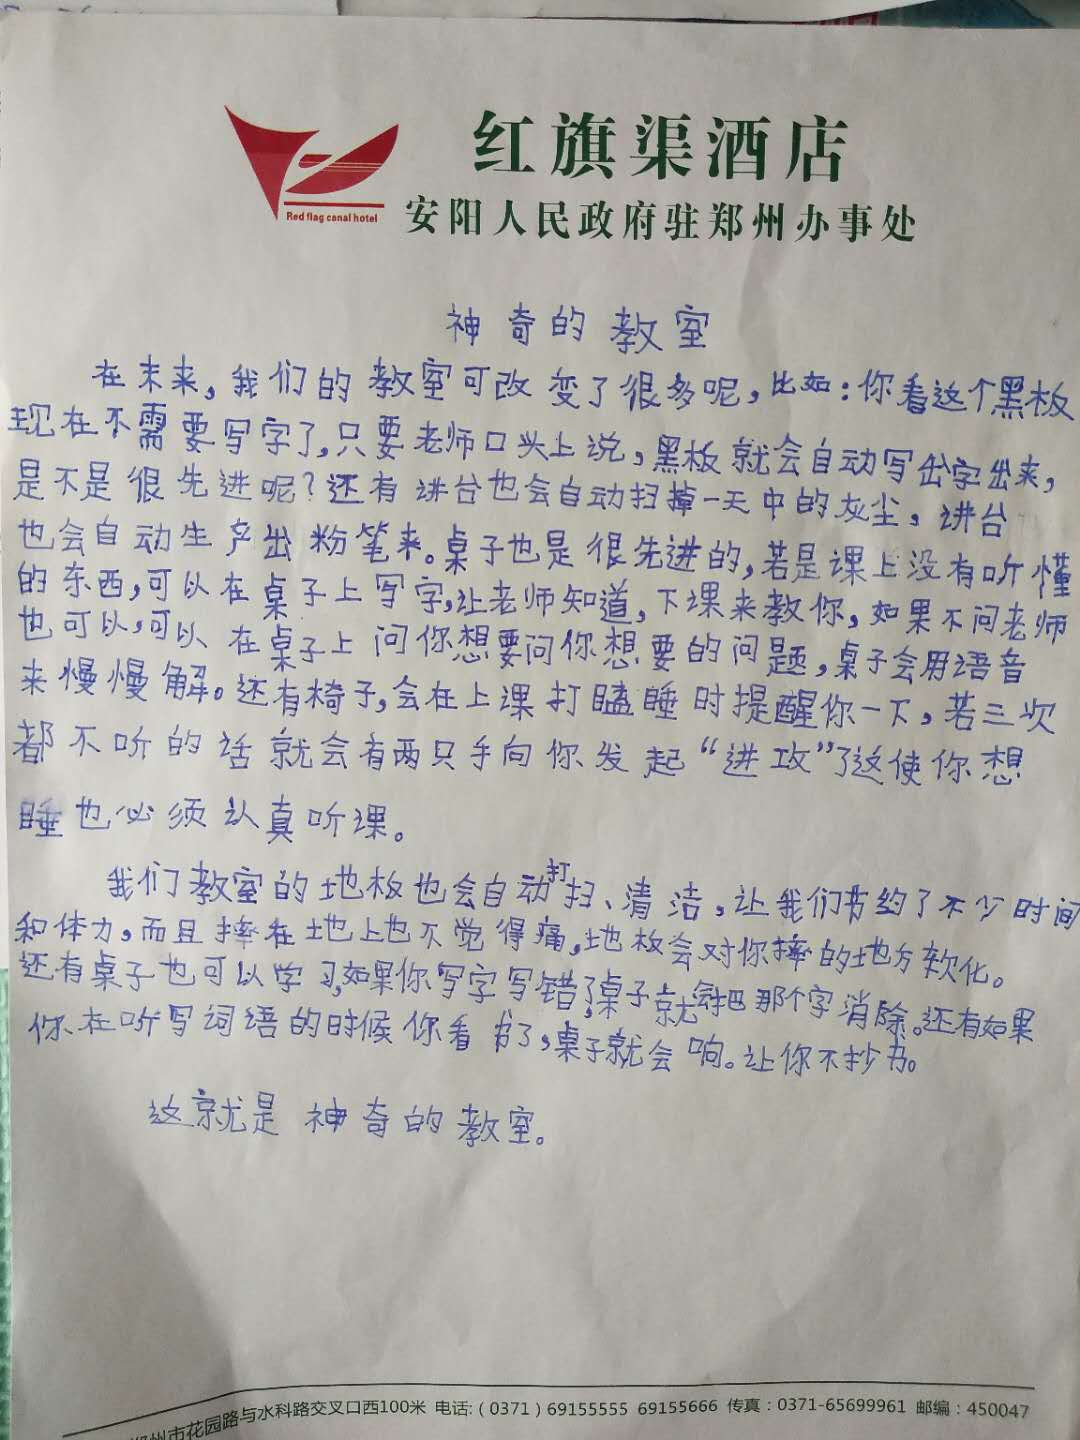 红旗渠酒店
Red flag canal hotel
安阳人民政府驻郑州办事处
神奇的教室
在未来，我们的教室可改变了很多呢，比如：你看这个黑板
现在不需要写字了，只要老师口头上说，黑板就会自动写出字出来，
是不是很先进呢？还有讲台也会自动扫掉一天中的灰尘，讲台
也会自动生产出粉笔来。桌子也是很先进的，若是课上没有听懂
的东西，可以在桌子上写字，让老师知道，下课来教你，如果不问老师
也可以，可以在桌子上问你想要问你想要的问题，桌子会用语音
来慢慢解。还有椅子，会在上课打瞌睡时提醒你一下，若三次
都不听的话就会有两只手向你发起“进攻”了这使你想
睡也必须认真听课。
我们教室的地板也会自动打扫、清洁，让我们节约了不少时间
和体力，而且摔在地上也不觉得痛，地板会对你摔的地方软化。
还有桌子也可以学习，如果你写字写错了桌子就会把那个字消除。还有如果
你在听写词语的时候你看书了，桌子就会响。让你不抄书。
这就是神奇的教室。
郑州市花园路与水科路交叉口西100米 电话：（0371）69155555 69155666 传真：0371-65699961 邮编：450047